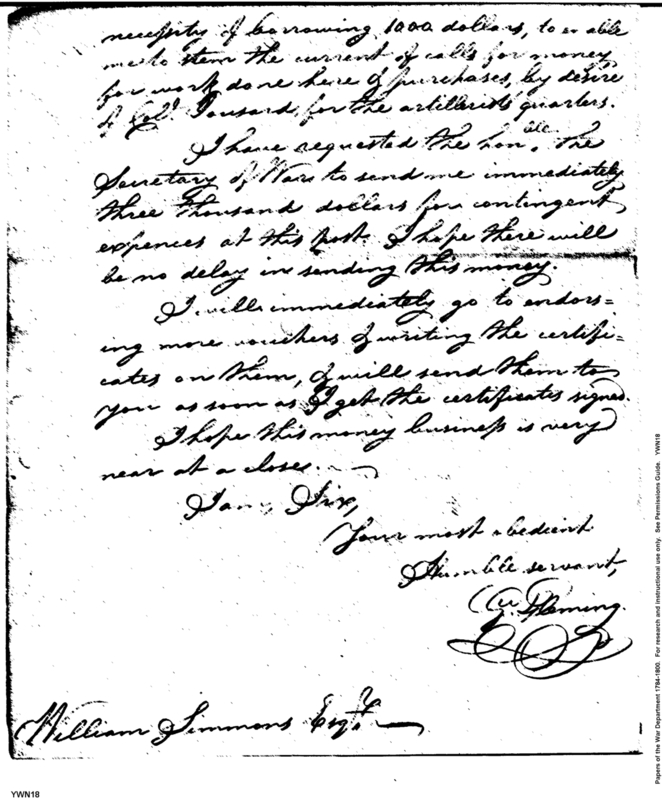 necessity of borrowing 1000 dollars, to enable
me to stem the current of calls for money
for work done here & purchases, by desire
of Colº. Tousard for the artillerists' quarters.
I have requested the honble. the
Secretary of War to send me immediately
three thousand dollars for contingent
expences at this post. I hope there will
be no delay in sending this money.
I will immediately go to endors=
ing more vouchers & writing the certifi-
cates on them, & will send them to
you as soon as I get the certificates signed.
I hope this money business is very
near at a close.
I am, Sir,
Your most obedient
Humble servant,
Fleming.
William Simmons Esqr.
YWN18
Papers of the War Department 1784-1800. For research and instructional use only. See Permissions Guide. YWN18